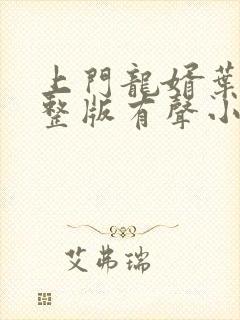 上門龍婿葉
整版有聲小
艾弗瑞